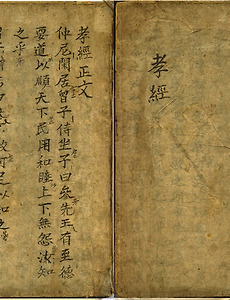 孝經
孝經正文
仲尼閒居曾子侍坐子曰參先王有至德
要道以順天下民用和睦上下無怨汝知
之乎
足以知之